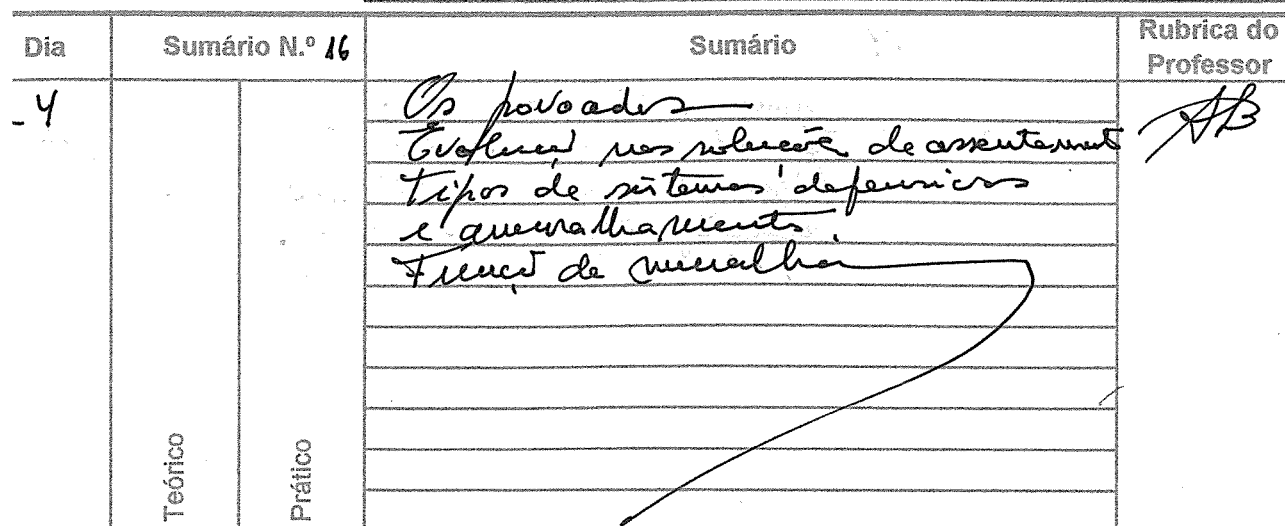 Dia Sumário N.º 16 Sumário Rubrica do Professor
4
Os povoados
Evolução nas soluções de assentamento
Tipos de sistemas defensivos
e amuralhamento.
Função de muralha
Teórico
Prático